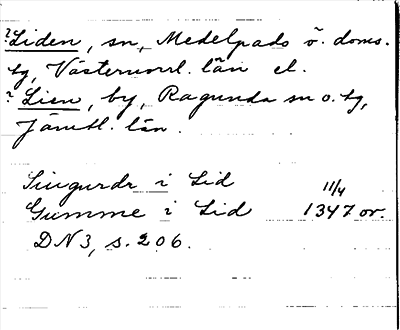 ? Liden, sn, Medelpads ö. doms.
tg, Västernorrl. län el.
? Lien, by, Ragunda sn o. tg,
Jämtl. län.
Siugurdr i Lid 11/4
Gumme i Lid 1347 or.
DN 3, s. 206.